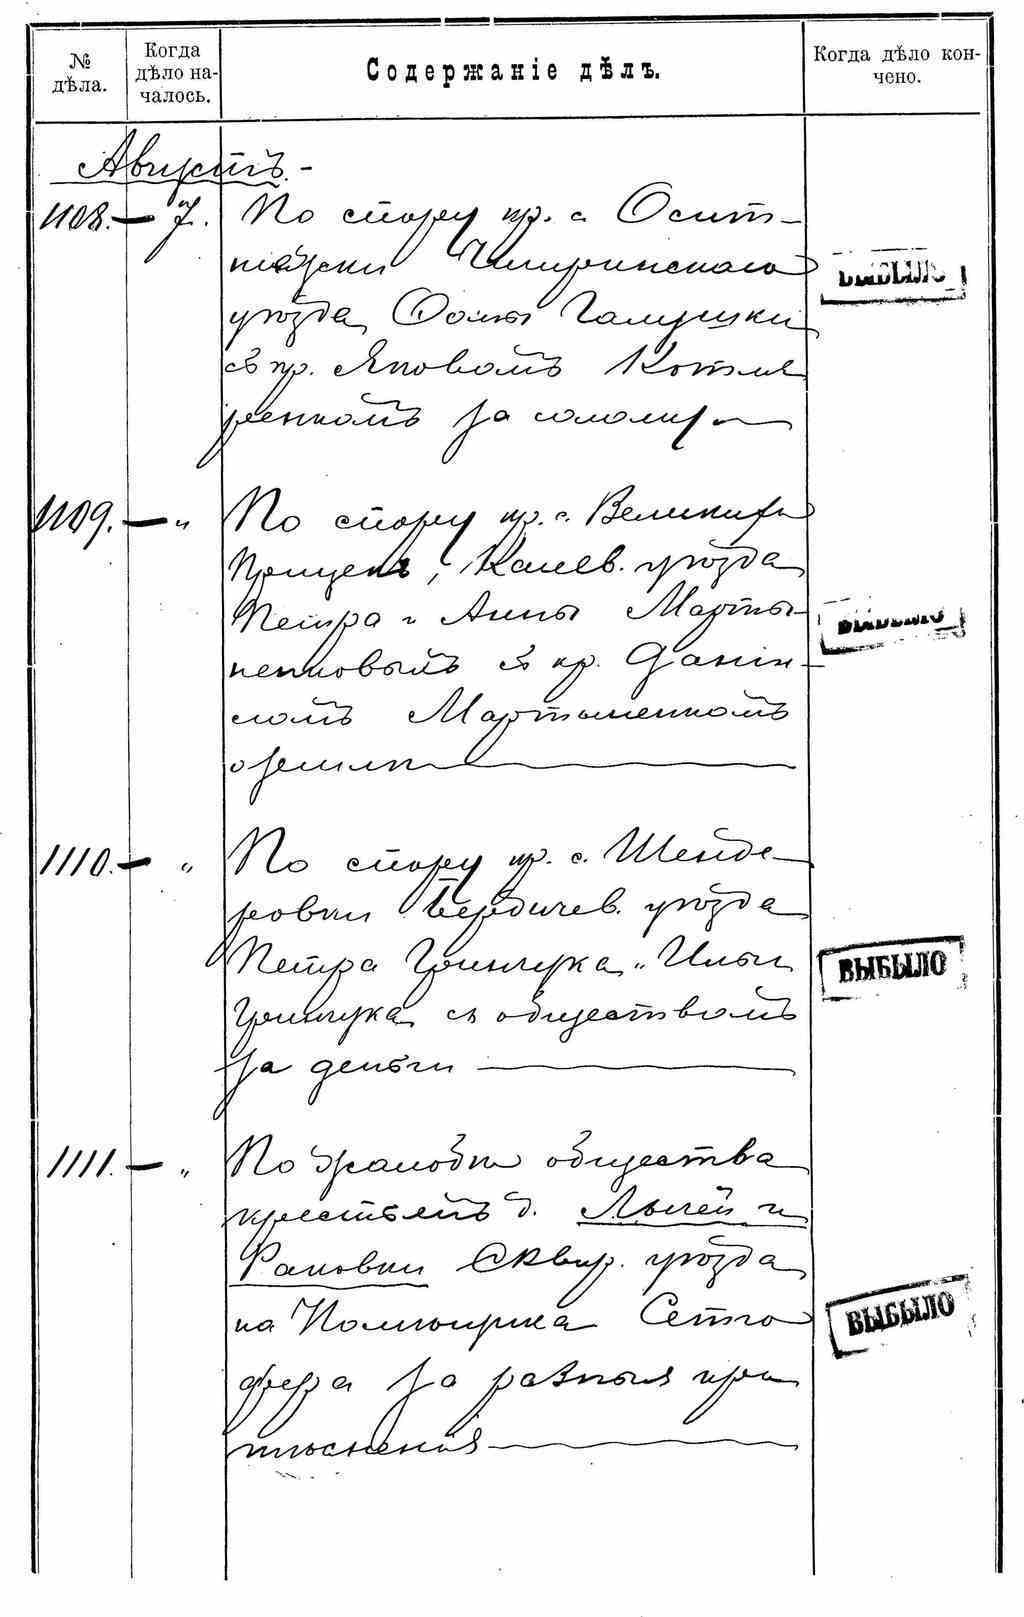 № дѣла.
Когда дѣло началось.
Содержаніе дѣлъ.
Когда дѣло кончено.
Августъ.
1108. — 7. По спору кр. с. Осит-
няжки Чигиринскаго
уѣзда Осипа Галушки
съ кр. Яковомъ Котля
ренкомъ за солому
ВЫБЫЛО
1109. — " По спору кр. с. Великихъ
Прицекъ, Каневъ. уѣзда
Петра и Анны Марты-
ненковымъ съ кр. Даніи-
ломъ Мартыненкомъ
о землѣ
ВЫБЫЛО
1110. — " По спору кр. с. Шенде-
ровки Бердичев. уѣзда
Петра Гринчука и Ильи
Гринчука съ обществомъ
за деньги
ВЫБЫЛО
1111. — " По жалобѣ общества
крестьянъ д. Лычей и
Раковки Сквир. уѣзда
на
за разныя при
тѣсненія
ВЫБЫЛО